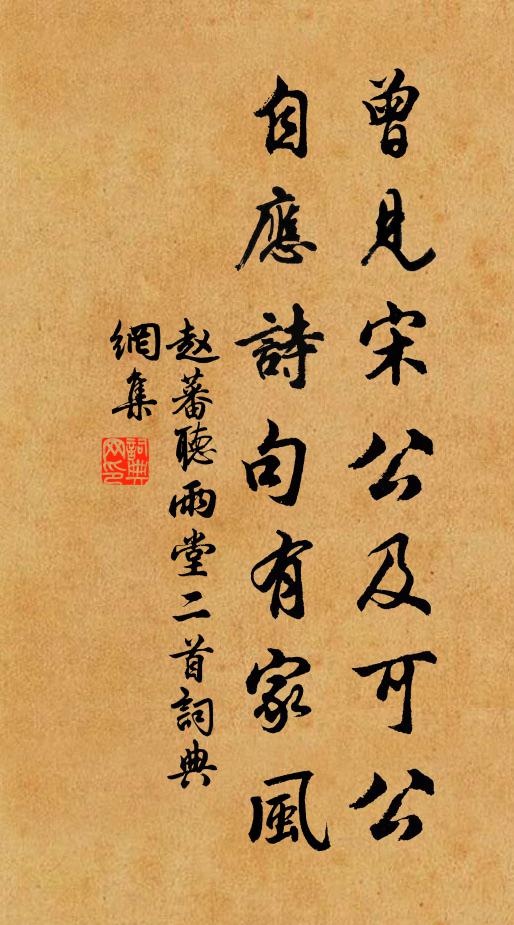 曾見宋公及可公
自應詩句有家風
赵蕃聽雨堂二首詞典
網集
詞典網印